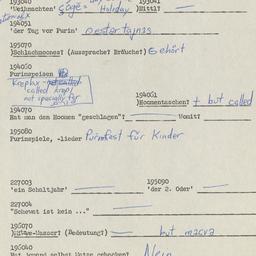 193040 193041
'Weihnachten' Holiday )Hittl? —
194051
'der Tag vor Purin'
195070
)Schlachmones( (Aussprache? Bräuche?) Gehört
194050
Purinspeisen
Kreplax
called krepl
not specially for
194061
)Homentaschen? + but called
194070
Hat man dem Homen "geschlagen"? Womit?
195080
Purinspiele, -lieder Purimfest für Kinder
227003 195090
'ein Schaltjahr' 'der 2. Oder'
227004
"Schewat ist kein ..."
196070
(Bedeutung?) — but macva
196040
Nein